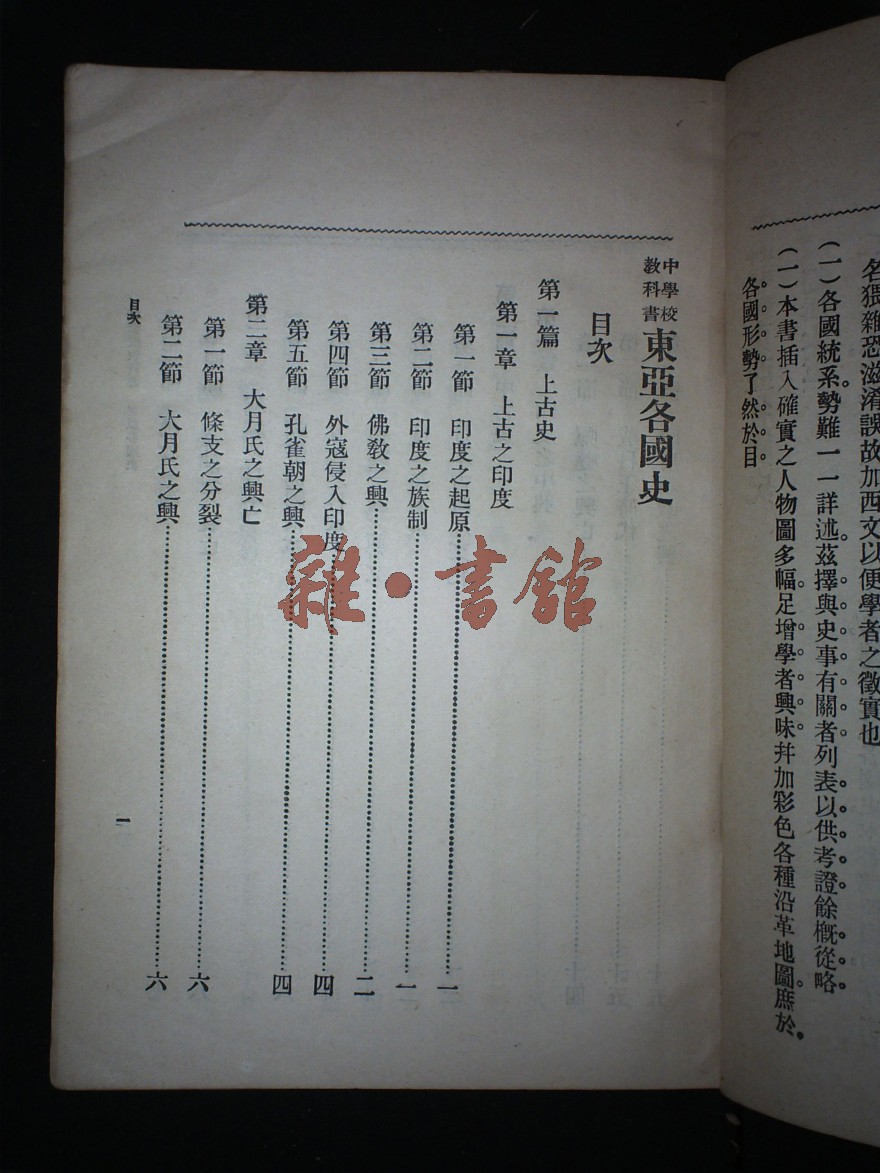 名猥雜恐滋淆誤故加西文以便學者之徵實也
(一)各國統系勢難一一詳述茲擇與史事有關者列表以供考證餘概從略。
(一)本書插入確實之人物圖多幅足增學者興味幷加彩色各種沿革地圖庶於
各國形勢了然於目
中學校教科書 東亞各國史
目次
第一篇 上古史
第一章 上古之印度
第一節 印度之起原 一
第二節 印度之族制 一
第三節 佛敎之興 二
第四節 外寇侵入印度 四
第五節 孔雀朝之興 四
第二章 大月氏之興亡
第一節 條支之分裂 六
第二節 大月氏之興 六
目次
一
雜·書館